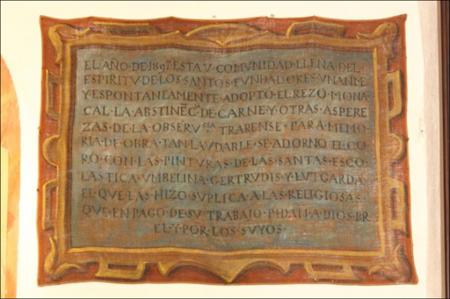 EL AÑO DE 189 ESTA V. COMUNIDAD LLENA DEL
ESPIRITU DE LOS SANTOS FUNDADORES UNANIME
Y ESPONTANEAMENTE ADOPTO EL REZO MONA
CAL·LA ABSTINEC. DE CARNE Y OTRAS ASPERE
ZAS·DE·LA·OBSERV.CIA TRAPENSE·PARA·MEMO
RIA·DE·OBRA·TAN·LAUDABLE·SE·ADORNO·EL·CO
RO·CON·LAS·PINTVRAS·DE·LAS·SANTAS·ESCO
LASTICA·VMBELINA·GERTRUDIS·Y·LUTGARDA·
EL·QUE·LAS·HIZO·SUPLICA·A·LAS·RELIGIOSAS·
QUE·EN·PAGO·DE·SV·TRABAJO·PIDAN·A·DIOS·P·R
EL·Y·POR·LOS·SUYOS·